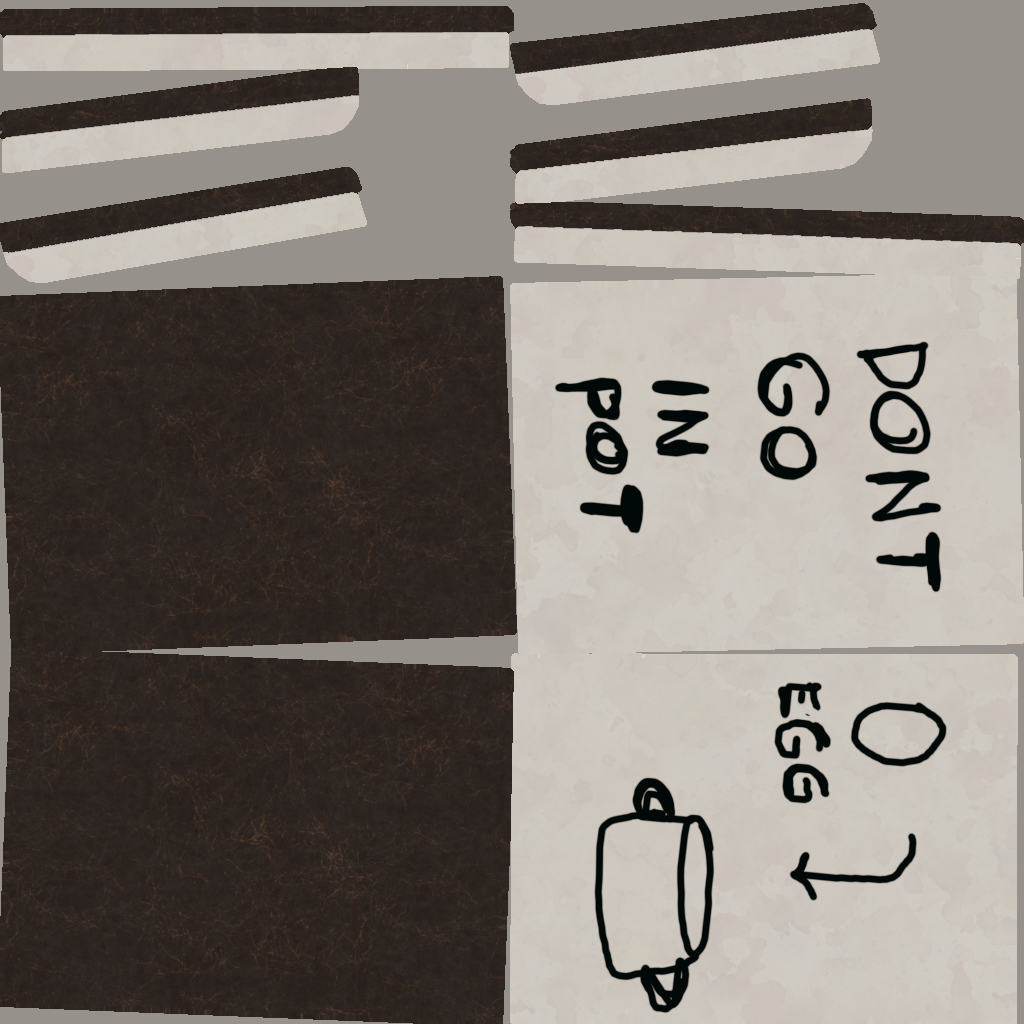 DONT
GO
IN
POT
EGG